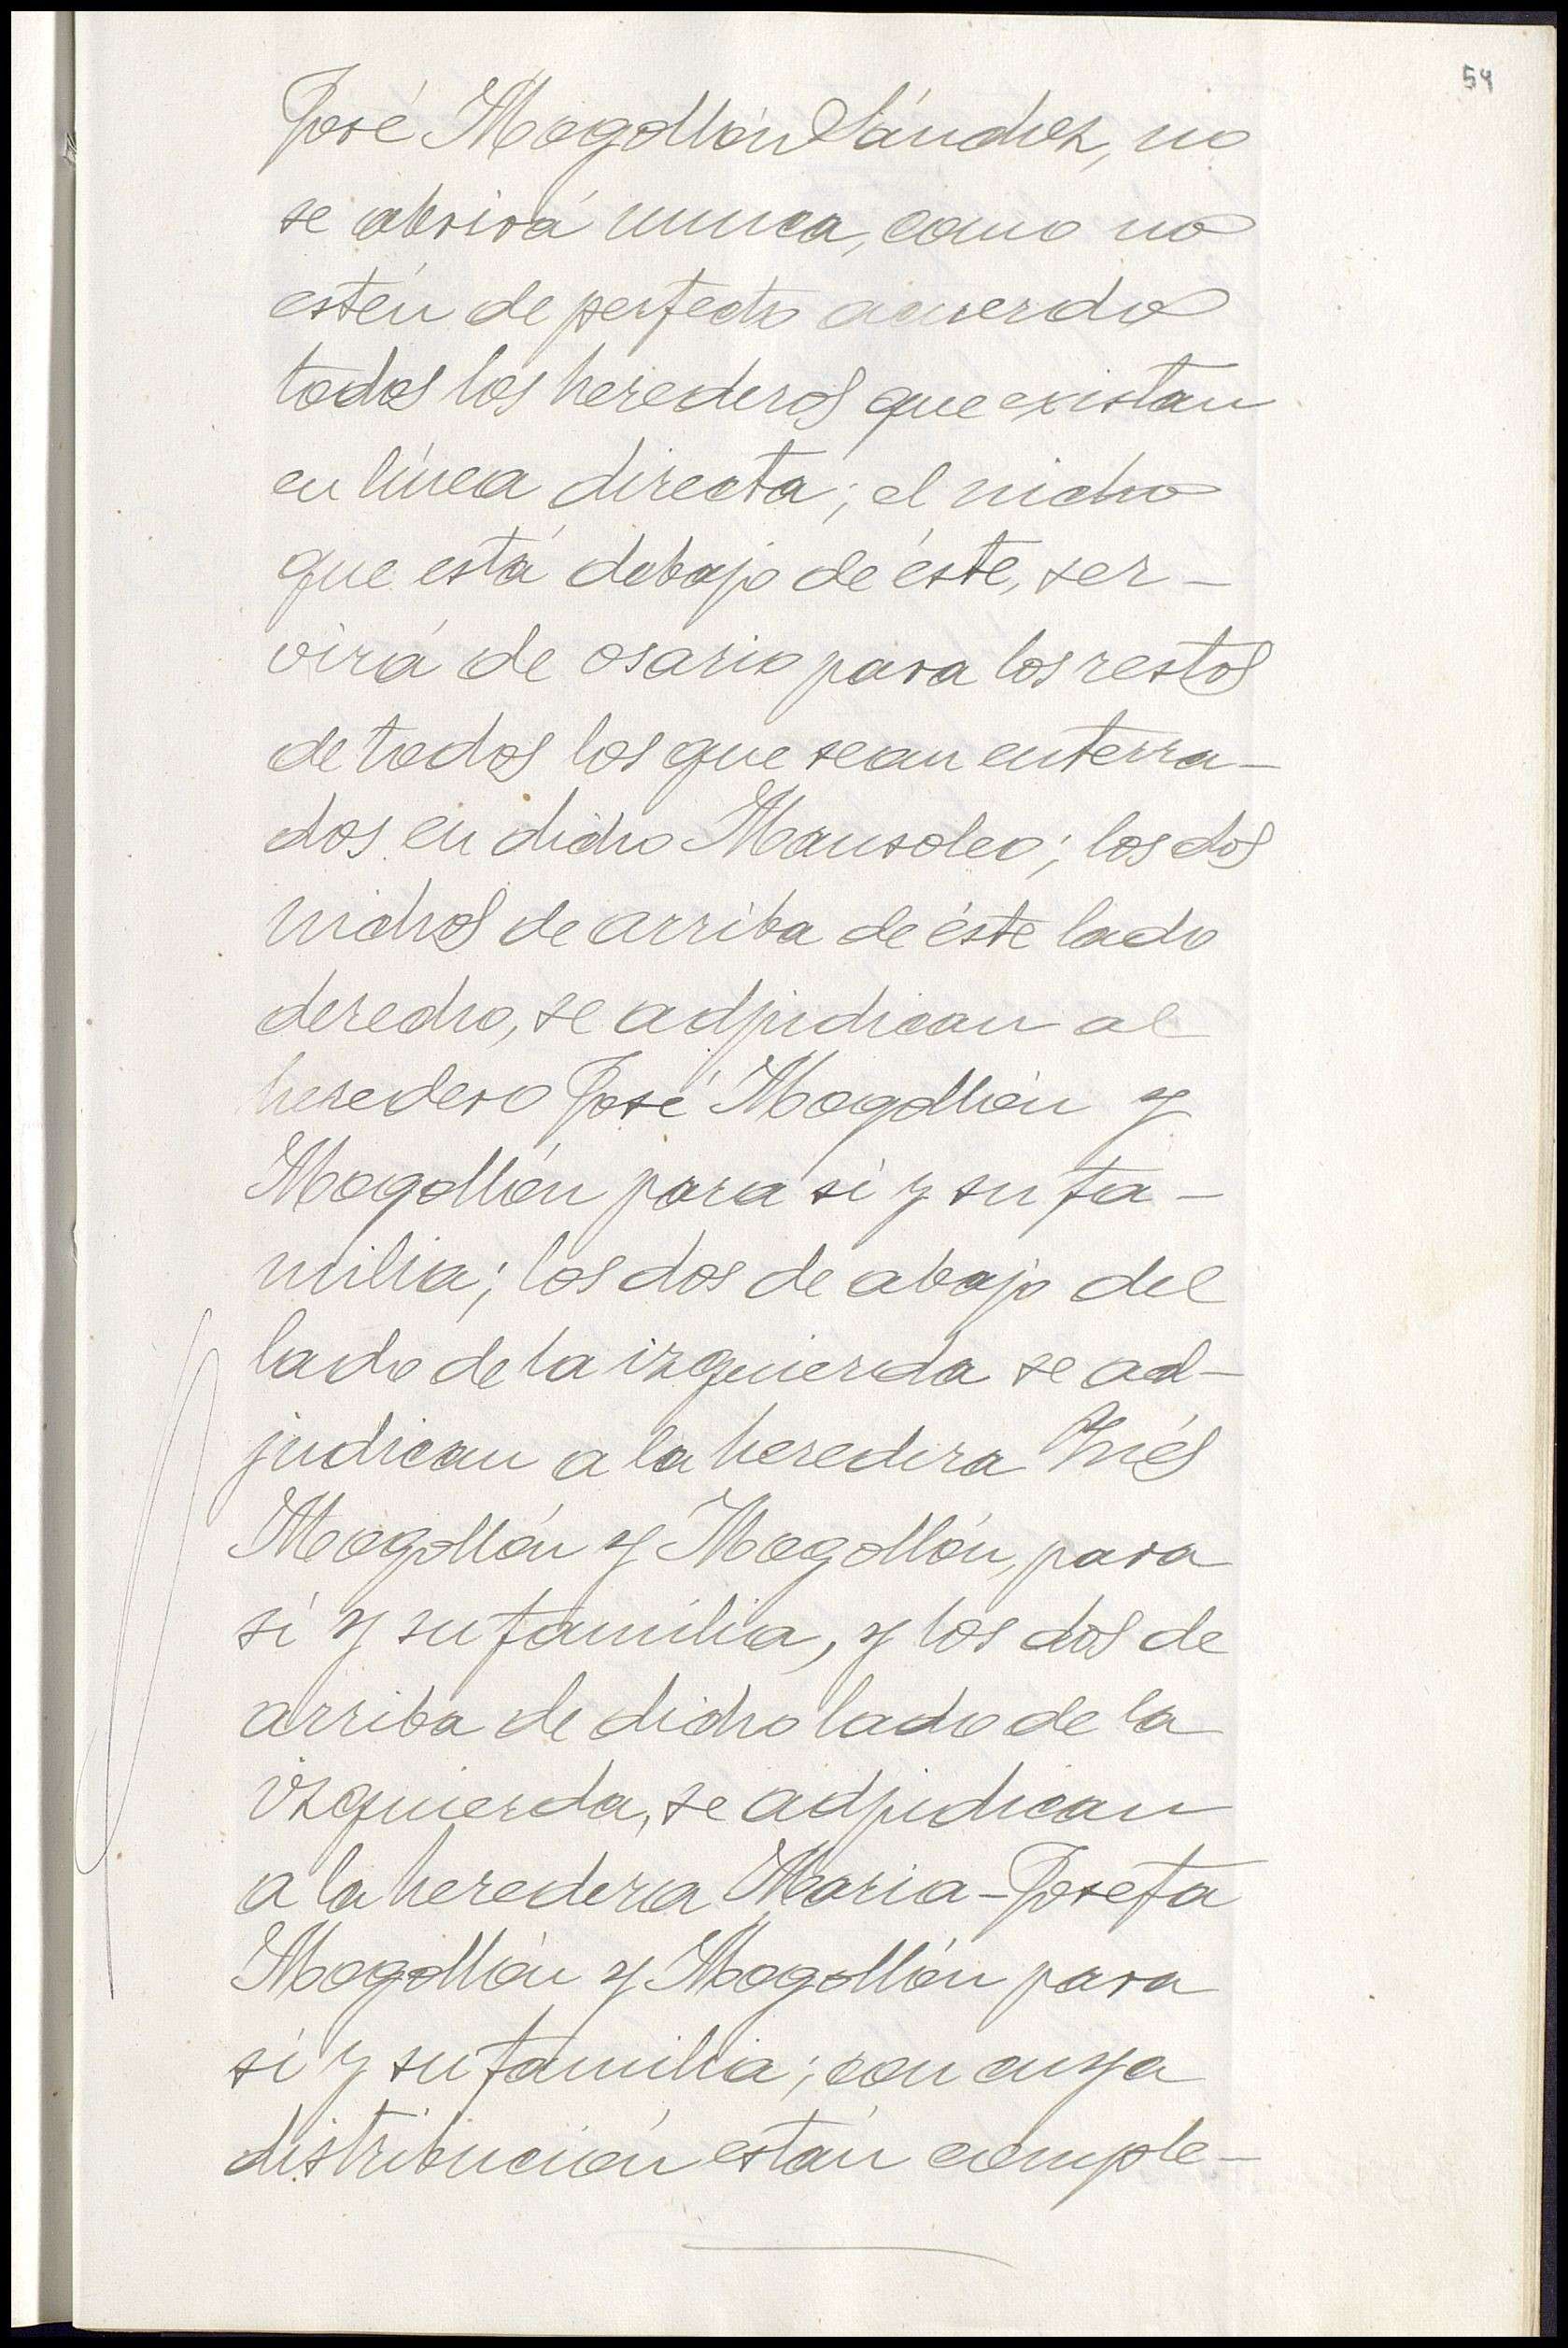 54
José Mogollón Sánchez, no
se abrirá nunca, como no
estén de perfecto acuerdo
todos los herederos que existan
en línea directa; el nicho
que está debajo de éste, ser-
virá de osario para los restos
de todos los que sean enterra-
dos en dicho Mausoleo; los dos
nichos de arriba de éste lado
derecho, se adjudican al
heredero José Mogollón y
Mogollón para sí y su fa-
milia; los dos de abajo del
lado de la izquierda se ad-
judican a la heredera Inés
Mogollón y Mogollón, para
sí y su familia, y los dos de
arriba de dicho lado de la
izquierda, se adjudican
a la heredera Maria-Josefa
Mogollón y Mogollón para
sí y su familia; con cuya
distribución están comple-